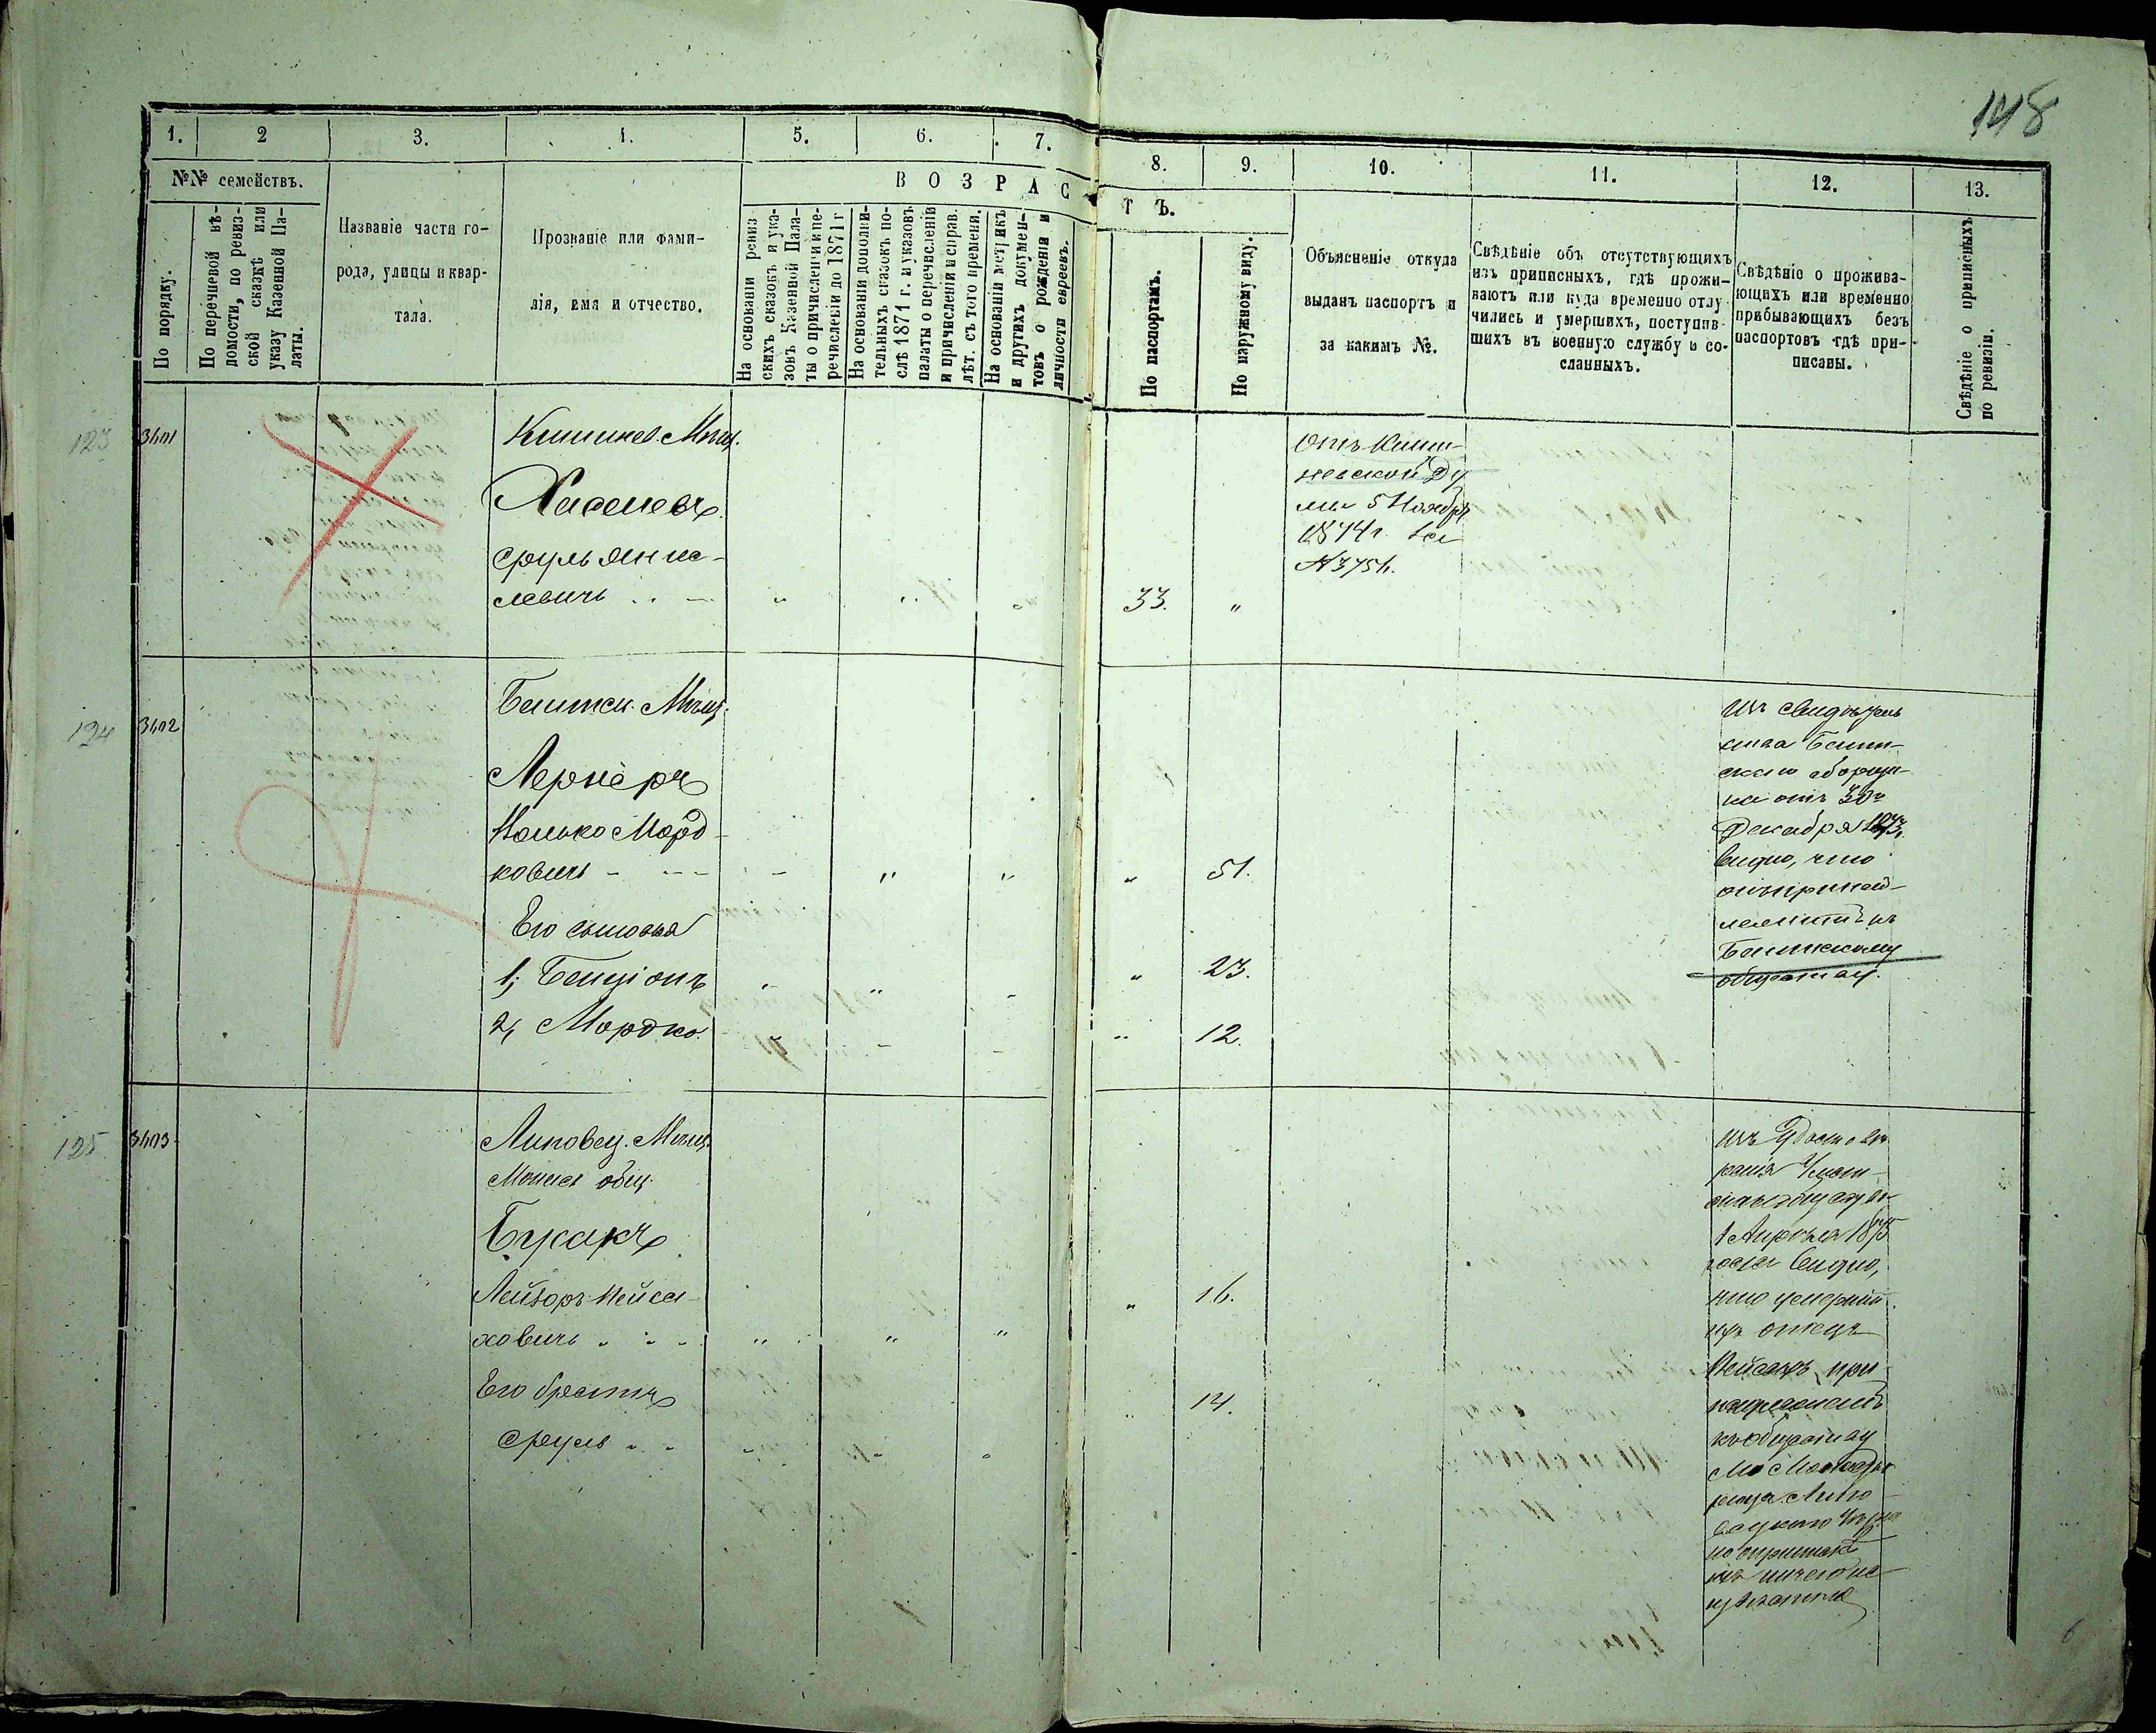 148
1. 2 3. 4. 5. 6. 7. 8. 9. 10. 11. 12. 13.
№№ семействъ.
ВОЗРАСТЪ.
По порядку.
По перечневой вѣ-
домости, по ревиз-
ской сказкѣ или
указу Казенной Па-
латы.
Названіе части го-
рода, улицы и квар-
тала.
Прозваніе или фами-
лія, имя и отчество.
На основаніи ревиз
скихъ сказокъ и ука-
зовъ Казенной Пала-
ты о причисленіи и пе-
речисленіи до 1871 г
На основаніи дополни-
тельныхъ сказокъ по-
слѣ 1871 г. и указовъ
палаты о перечисленіи
и причисленіи и справ.
лѣт. съ того времени.
На основаніи метрикъ
и другихъ докумен-
товъ о рожденіи и
личности евреевъ.
По паспортамъ.
По наружному виду.
Объясненіе откуда
выданъ паспортъ и
за какимъ №.
Свѣдѣніе объ отсутствующихъ
изъ приписныхъ, гдѣ прожи-
ваютъ или куда временно отлу
чились и умершихъ, поступив-
шихъ въ военную службу и со-
сланныхъ.
Свѣдѣніе о прожива-
ющихъ или временно
прибывающихъ безъ
паспортовъ гдѣ при-
писаны.
Свѣдѣніе о приписныхъ
по ревизіи.
123 3401
Кишинев. Мѣщ.
Хаселевъ
Сруль
левичъ 33.
Отъ Киши-
невской Ду
мы 5 Ноября
1874 г. за
124 3402
Балтск. Мѣщ.
Лернеръ
Мордковичъ 51.
Его сыновья
1, Бенціонъ 23.
2, Мордко 12.
Изъ свидѣтель
ства Балт-
скаго
отъ 30
Декабря
видно, что
онъ принад-
лежитъ къ
Балтскому
обществу.
125 3403
Липовец. Мѣщ.
общ.
Лейзоръ Нейса-
ховичъ 16.
Его братъ 14.
Сруль
Изъ Удостовѣ-
ренія
1 Апрѣля 1875
года видно,
что умершій
ихъ отецъ
Нейсахъ при
надлежалъ
къ обществу